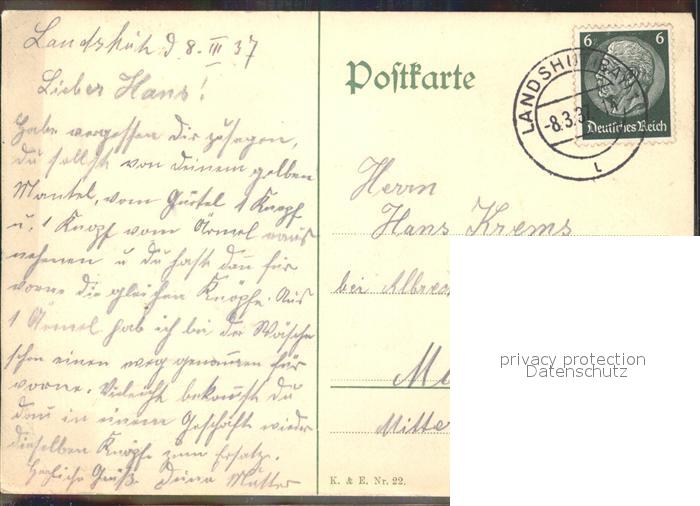 Landshut d 8. III 37
Lieber Hans!
Habe vergessen Dir zusagen,
du sollst von deinem gelben
Mantel, vom Gürtel 1 Knopf
u. 1 Knopf vom Ärmel raus
nehmen u du hast dan für
vorne die gleichen Knöpfe. Aus
1 Ärmel hab ich bei der Wäsche
schon einen weg genommen für
vorne. Vieleicht bekommst du
dan in einem Geschäft wieder
dieselben Knöpfe zum Ersatz.
Herzliche Grüße Deine Mutter
Postkarte
LANDSHUT (BAY)
-8.3.37
6 6
Deutsches Reich
Herrn
Hans Krems
bei Albre
M
Mitte
K. & E. Nr. 22.
privacy protection
Datenschutz